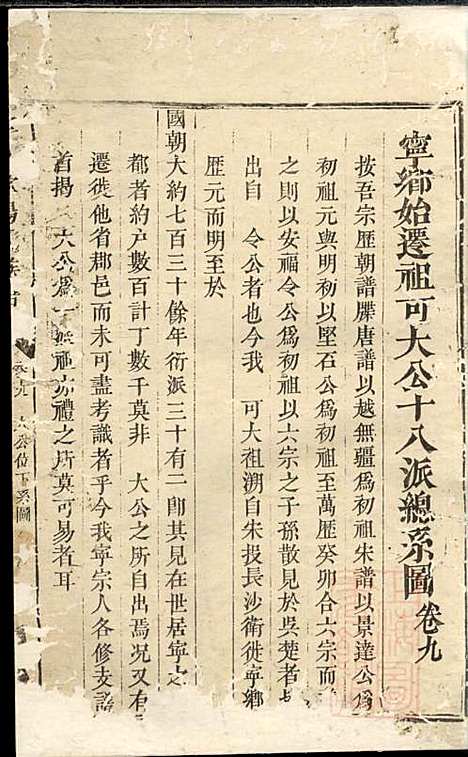 寧鄉始遷祖可大公十八派總系圖 卷九
按吾宗歷朝譜牒唐譜以越無疆爲初祖朱譜以景達公爲
初祖元與明初以堅石公爲初祖至萬歷癸卯合六宗而
之則以安福令公爲初祖以六宗之子孫散見於吳楚者
出自 令公者也今我 可大祖溯自朱投長沙衛徙寧鄉
歷元而明至於
國朝大約七百三十餘年衍派三十有二卽其見在世居寧之
都者約戶數百計丁數千莫非 大公之所自出焉况又有
遷徙他省郡邑而未可盡考識者乎今我寧宗人各修支譜
首揭 大公爲 祖亦禮之所莫可易者耳
卷九 大公位下系圖